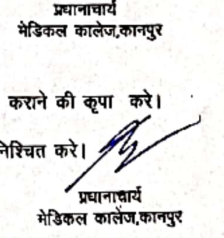 प्रधानाचार्य
मेडिकल कालेज,कानपुर
कराने की कृपा करे।
निश्चित करे।
प्रधानाचार्य
मेडिकल कालेज,कानपुर